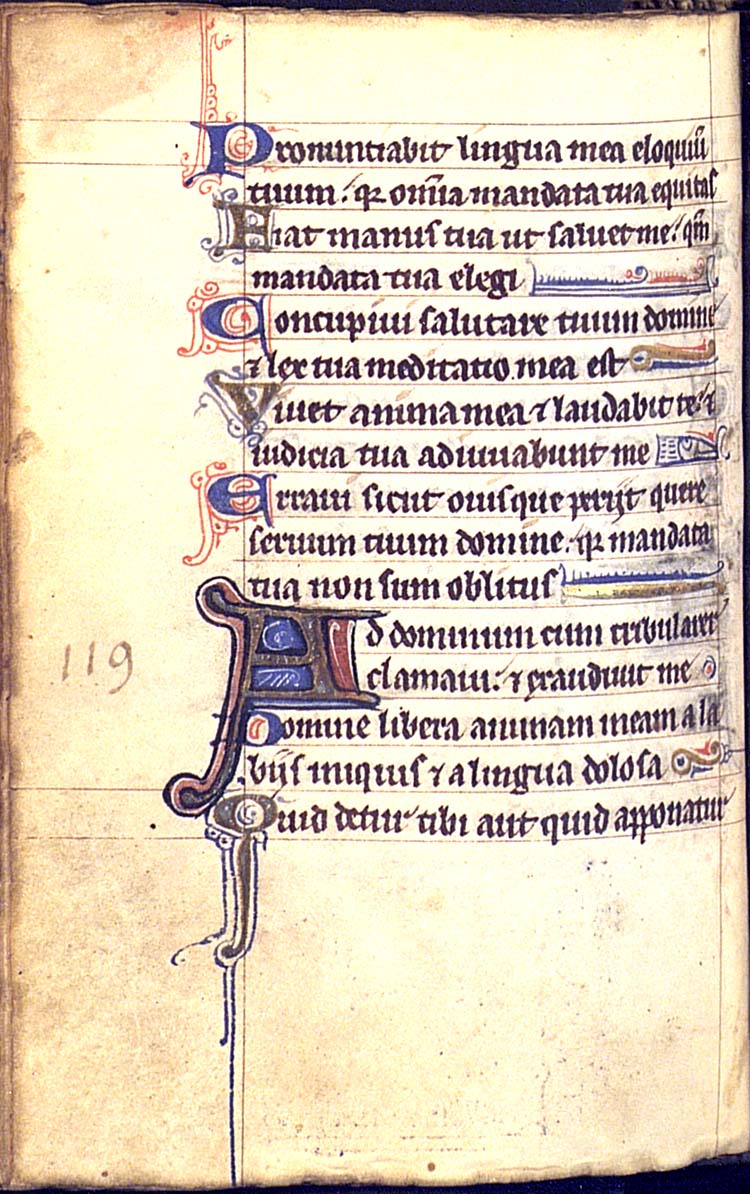 Pronuntiabit lingua mea eloquiū
tuum. qr om̄ia mandata tua equitas
Fiat manus tua ut saluet me. qm̄
mandata tua elegi
Concupiui salutare tuum domine
⁊ lex tua meditatio mea est
Viuet anima mea ⁊ laudabit te. ⁊
iudicia tua adiuuabunt me
Erraui sicut ouis que perijt quere
seruum tuum domine. qr mandata
tua non sum oblitus
Ad dominum cum tribularer
119
clamaui. ⁊ exaudiuit me
Domine libera animam meam a la
bijs iniquis ⁊ a lingua dolosa
Quid detur tibi aut quid apponatur